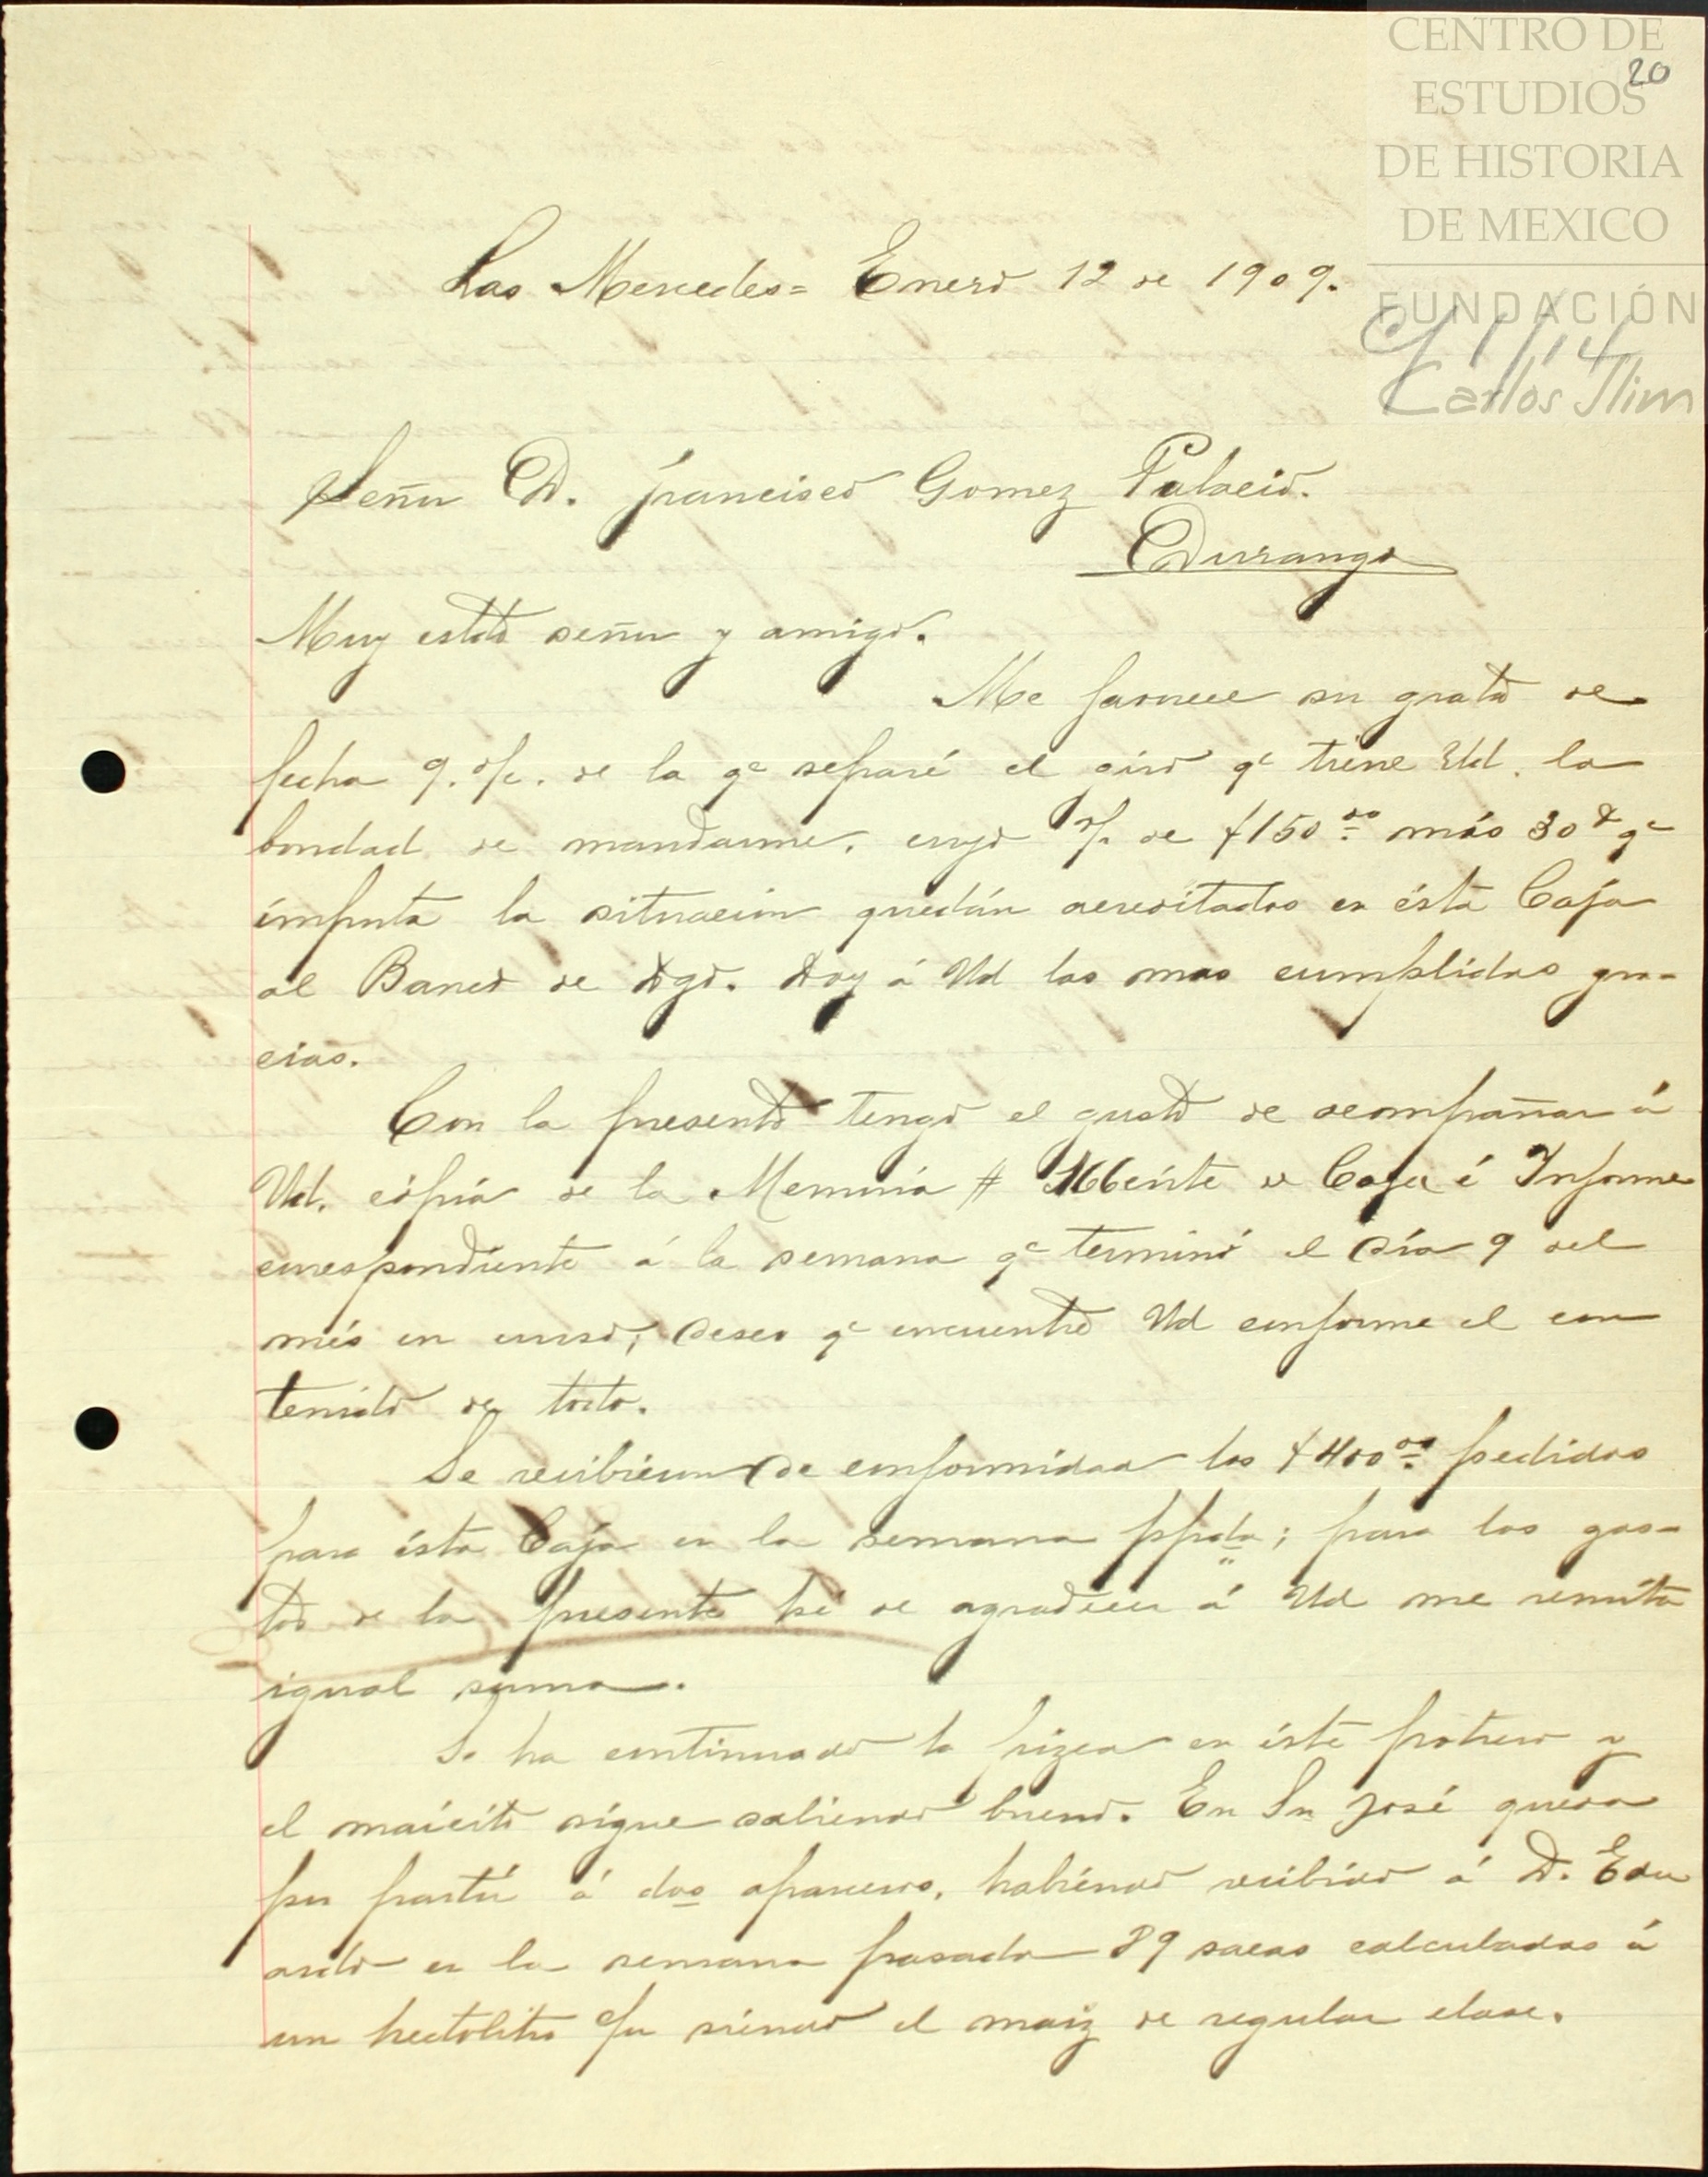 CENTRO DE
20
ESTUDIOS
DE HISTORIA
DE MEXICO
Las Mercedes= Enero 12 de 1909.
FUNDACIÓN
1/14
Carlos Slim
Señor D. Francisco Gomez Palacio.
Durango
Muy estdo señor y amigo.
Me favorece su grata de
fecha 9. de la qe separé el giro qe tiene Ud. la
bondad de mandarme, cuyo de $150.00 más 30 qe
importa la situacion quedán acreditados en ésta Caja
al Banco de Dgo. Doy á Ud las mas cumplidas gra-
cias.
Con la presente tengo el gusto de acompañar á
Ud. cópia de la Memoria # de Caja é Informe
correspondiente á la semana qe terminó el día 9 del
més en curso; deseo qe encuentre Ud conforme el con
tenido de todo.
Se recibieron de conformidad los $400.00 pedidos
para ésta Caja en la semana ppda; para los gas-
tos de la presente hé de agradecer á Ud me remita
igual suma.
Se ha continuado la pizca en éste potrero y
el maicito sigue saliendo bueno. En Sn José queda
por partir á dos aparceros, habiendo recibido á D. Edu
ardo en la semana pasada 89 sacas calculadas á
un hectolitro siendo el maiz de regular clase.